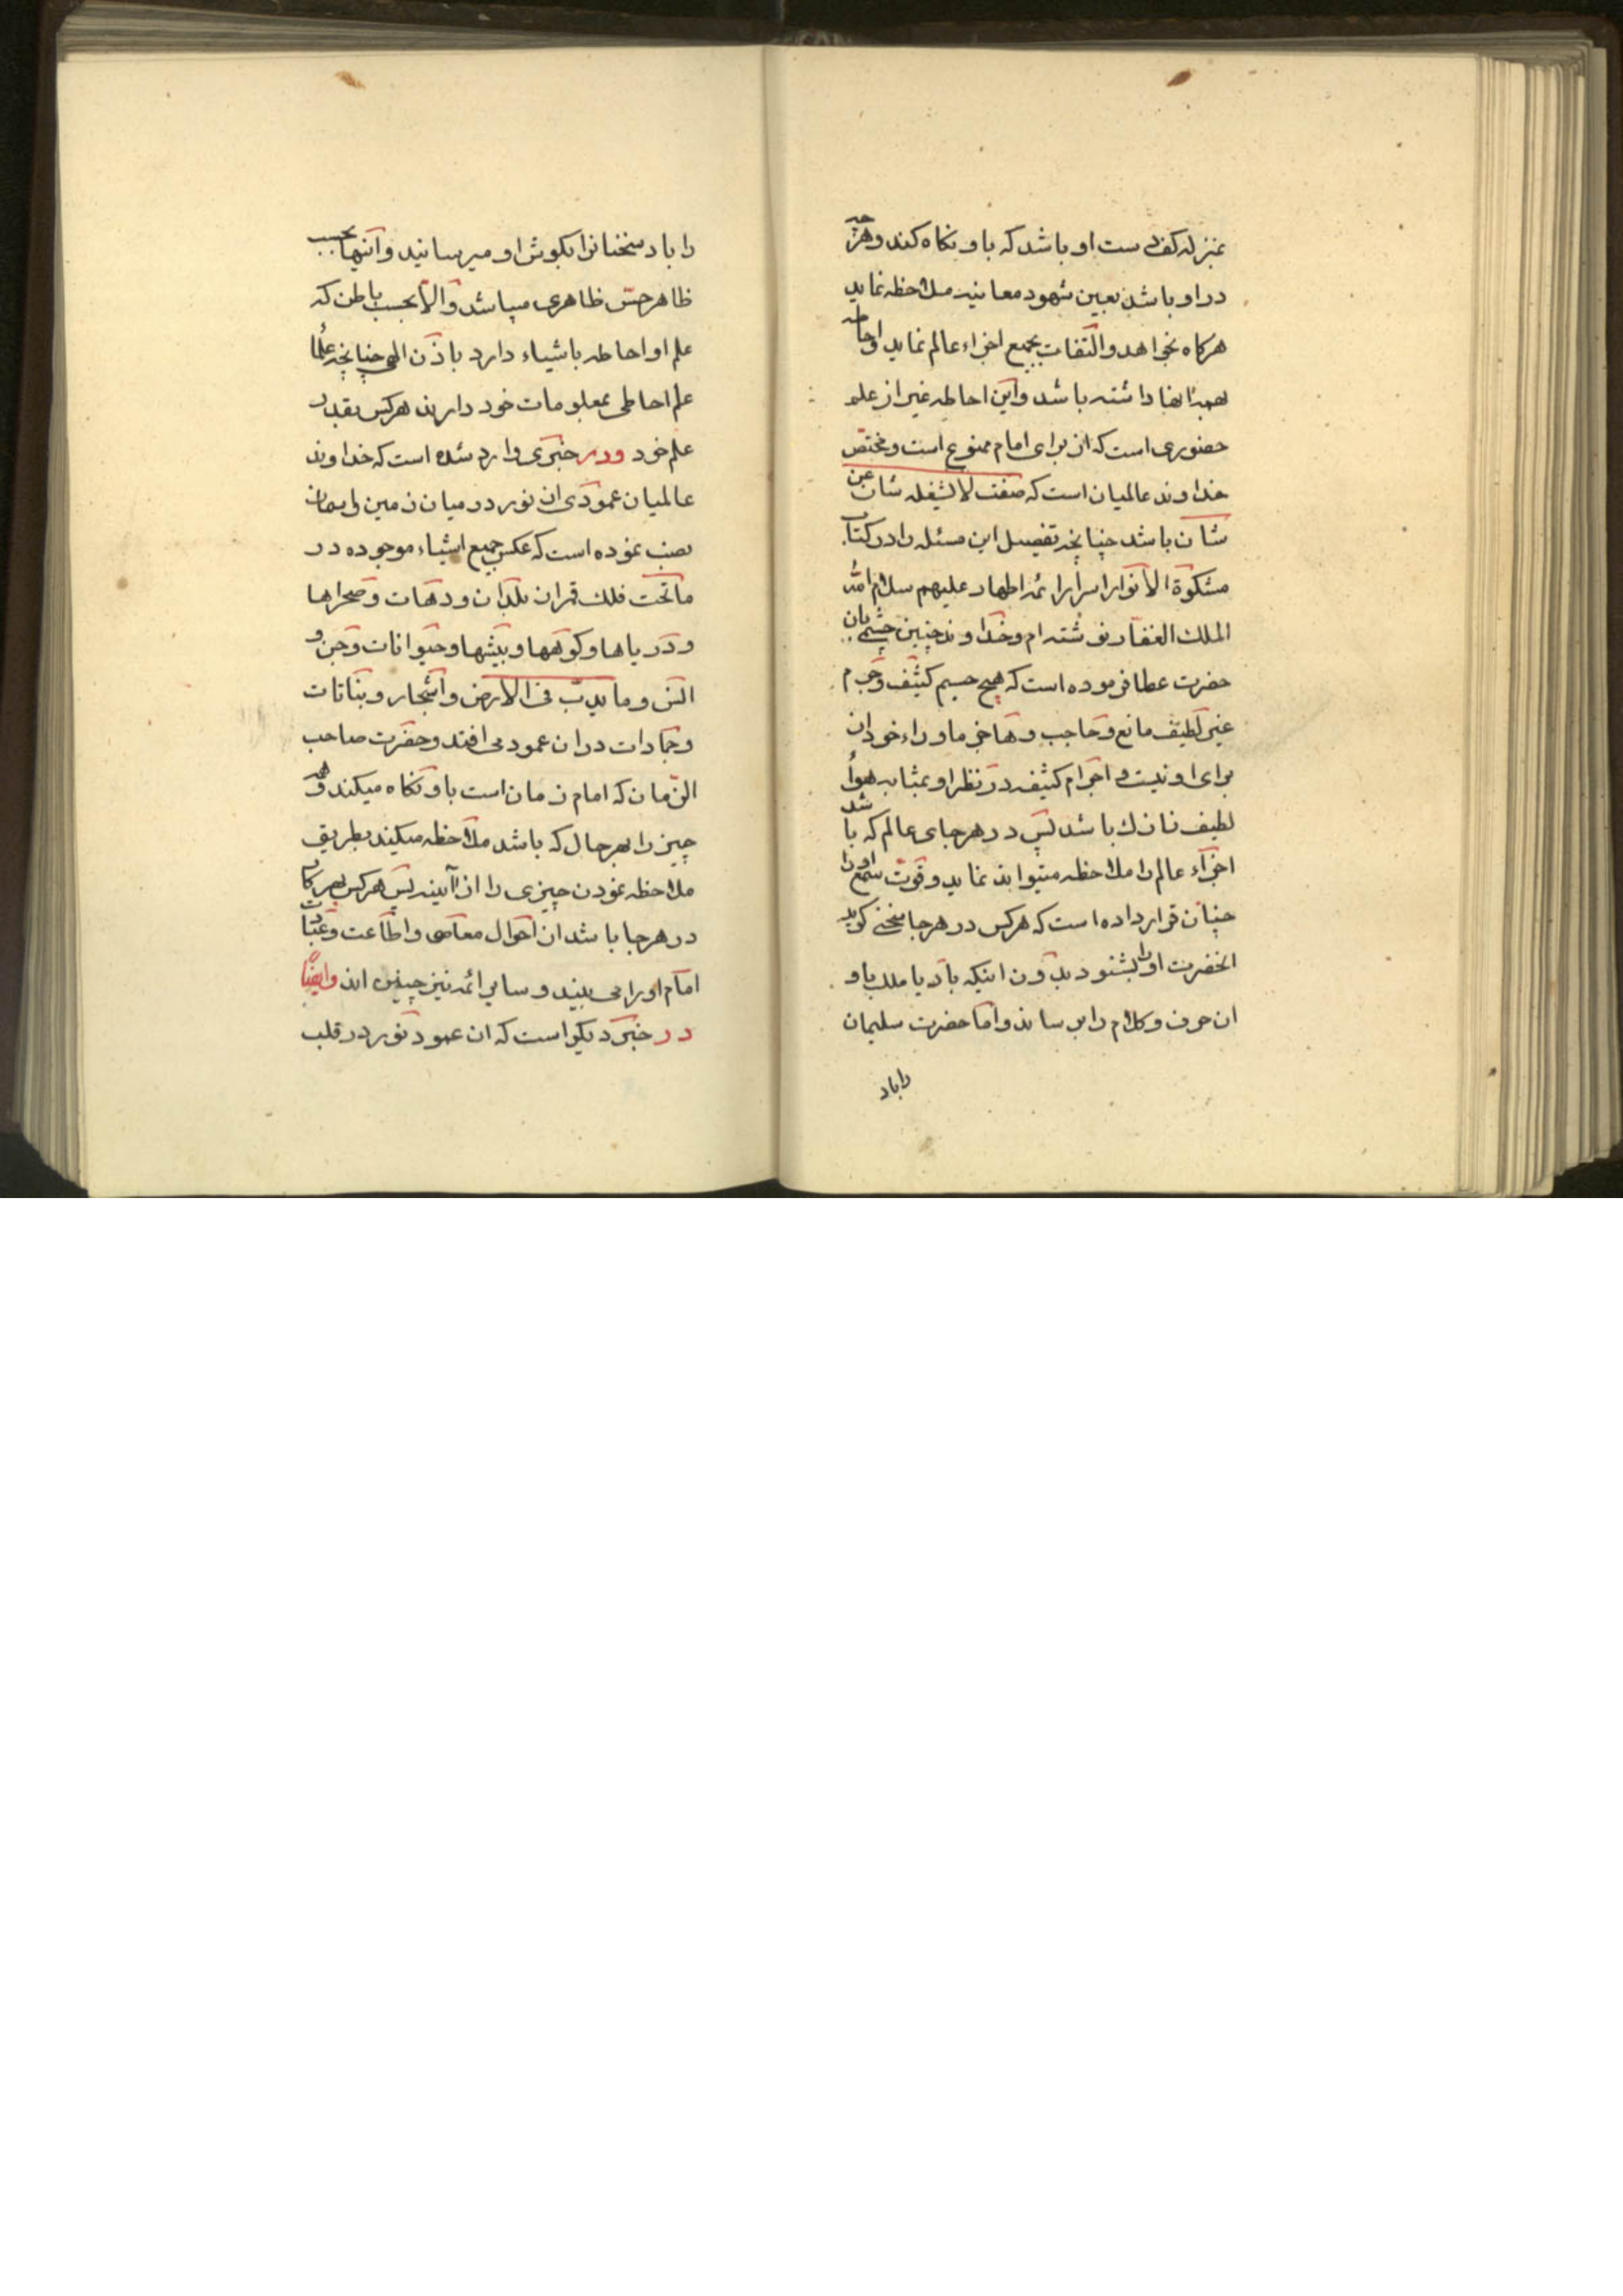 بمنزله کف دست او باشد که باو نکاه کند و هرچه
در او باشد بعین شهود معاینه ملاحظه نماید
هرکاه بخواهد و التفات بجمیع اجزاء عالم نماید و احاطه
بهمه انها داشته باشد و این احاطه غیر از علم
حضوری است که ان برای امام ممنوع است و مختص
خداوند عالمیان است که صفت لا یشغله شان عن
شان باشد چنانچه تفصیل این مسئله را در کتاب
مشکوة الانوار اسرار ائمه اطهار علیهم سلام الله
الملک الغفار نوشته ام و خداوند چنین چشمی بان
حضرت عطا فرموده است که هیچ جسم کثیف و جرم
غیر لطیف مانع و حاجب و ماوراء خود ان
برای او نیست و اجرام کثیفه در نظر او بمثابه هواء
لطیف نازک باشد پس در هر جای عالم که باشد
اجزاء عالم را ملاحظه میتواند نماید و قوت سمع او را
چنان قرار داده است که هرکس در هر جا سخنی کوید
انحضرت او را بشنود بدون اینکه باد یا ملک باو
ان حرف و کلام را برساند و اما حضرت سلیمان
را باد
را باد سخنانرا بکوش او میرسانید و اینها بحسب
ظاهر حس ظاهری میباشد و الا بحسب باطن که
علم او احاطه باشیاء دارد باذن الهی چنانچه علما
علم احاطی بمعلومات خود دارند هرکس بقدر
علم خود و در خبری وارد شده است که خداوند
عالمیان عمودی از نور در میان زمین و اسمان
نصب نموده است که عکس جمیع اشیاء موجوده در
ما تحت فلک قمر از بلدان و دهات و صحراها
و دریاها و کوهها و بیشها و حیوانات و جن و
انس و ما یدب فی الارض و اشجار و نباتات
و جمادات در ان عمود می افتد و حضرت صاحب
الزمان که امام زمان است باو نکاه میکند و هر
چیز را بهر حال که باشد ملاحظه میکند بطریق
ملاحظه نمودن چیزی را از آیینه پس هرکس بهر کار
در هر جا باشد از احوال معاصی و اطاعت و عبادت
امام او را می بیند و سایر ائمه نیز چنین اند و ایضا
در خبر دیکر است که ان عمود نور در قلب